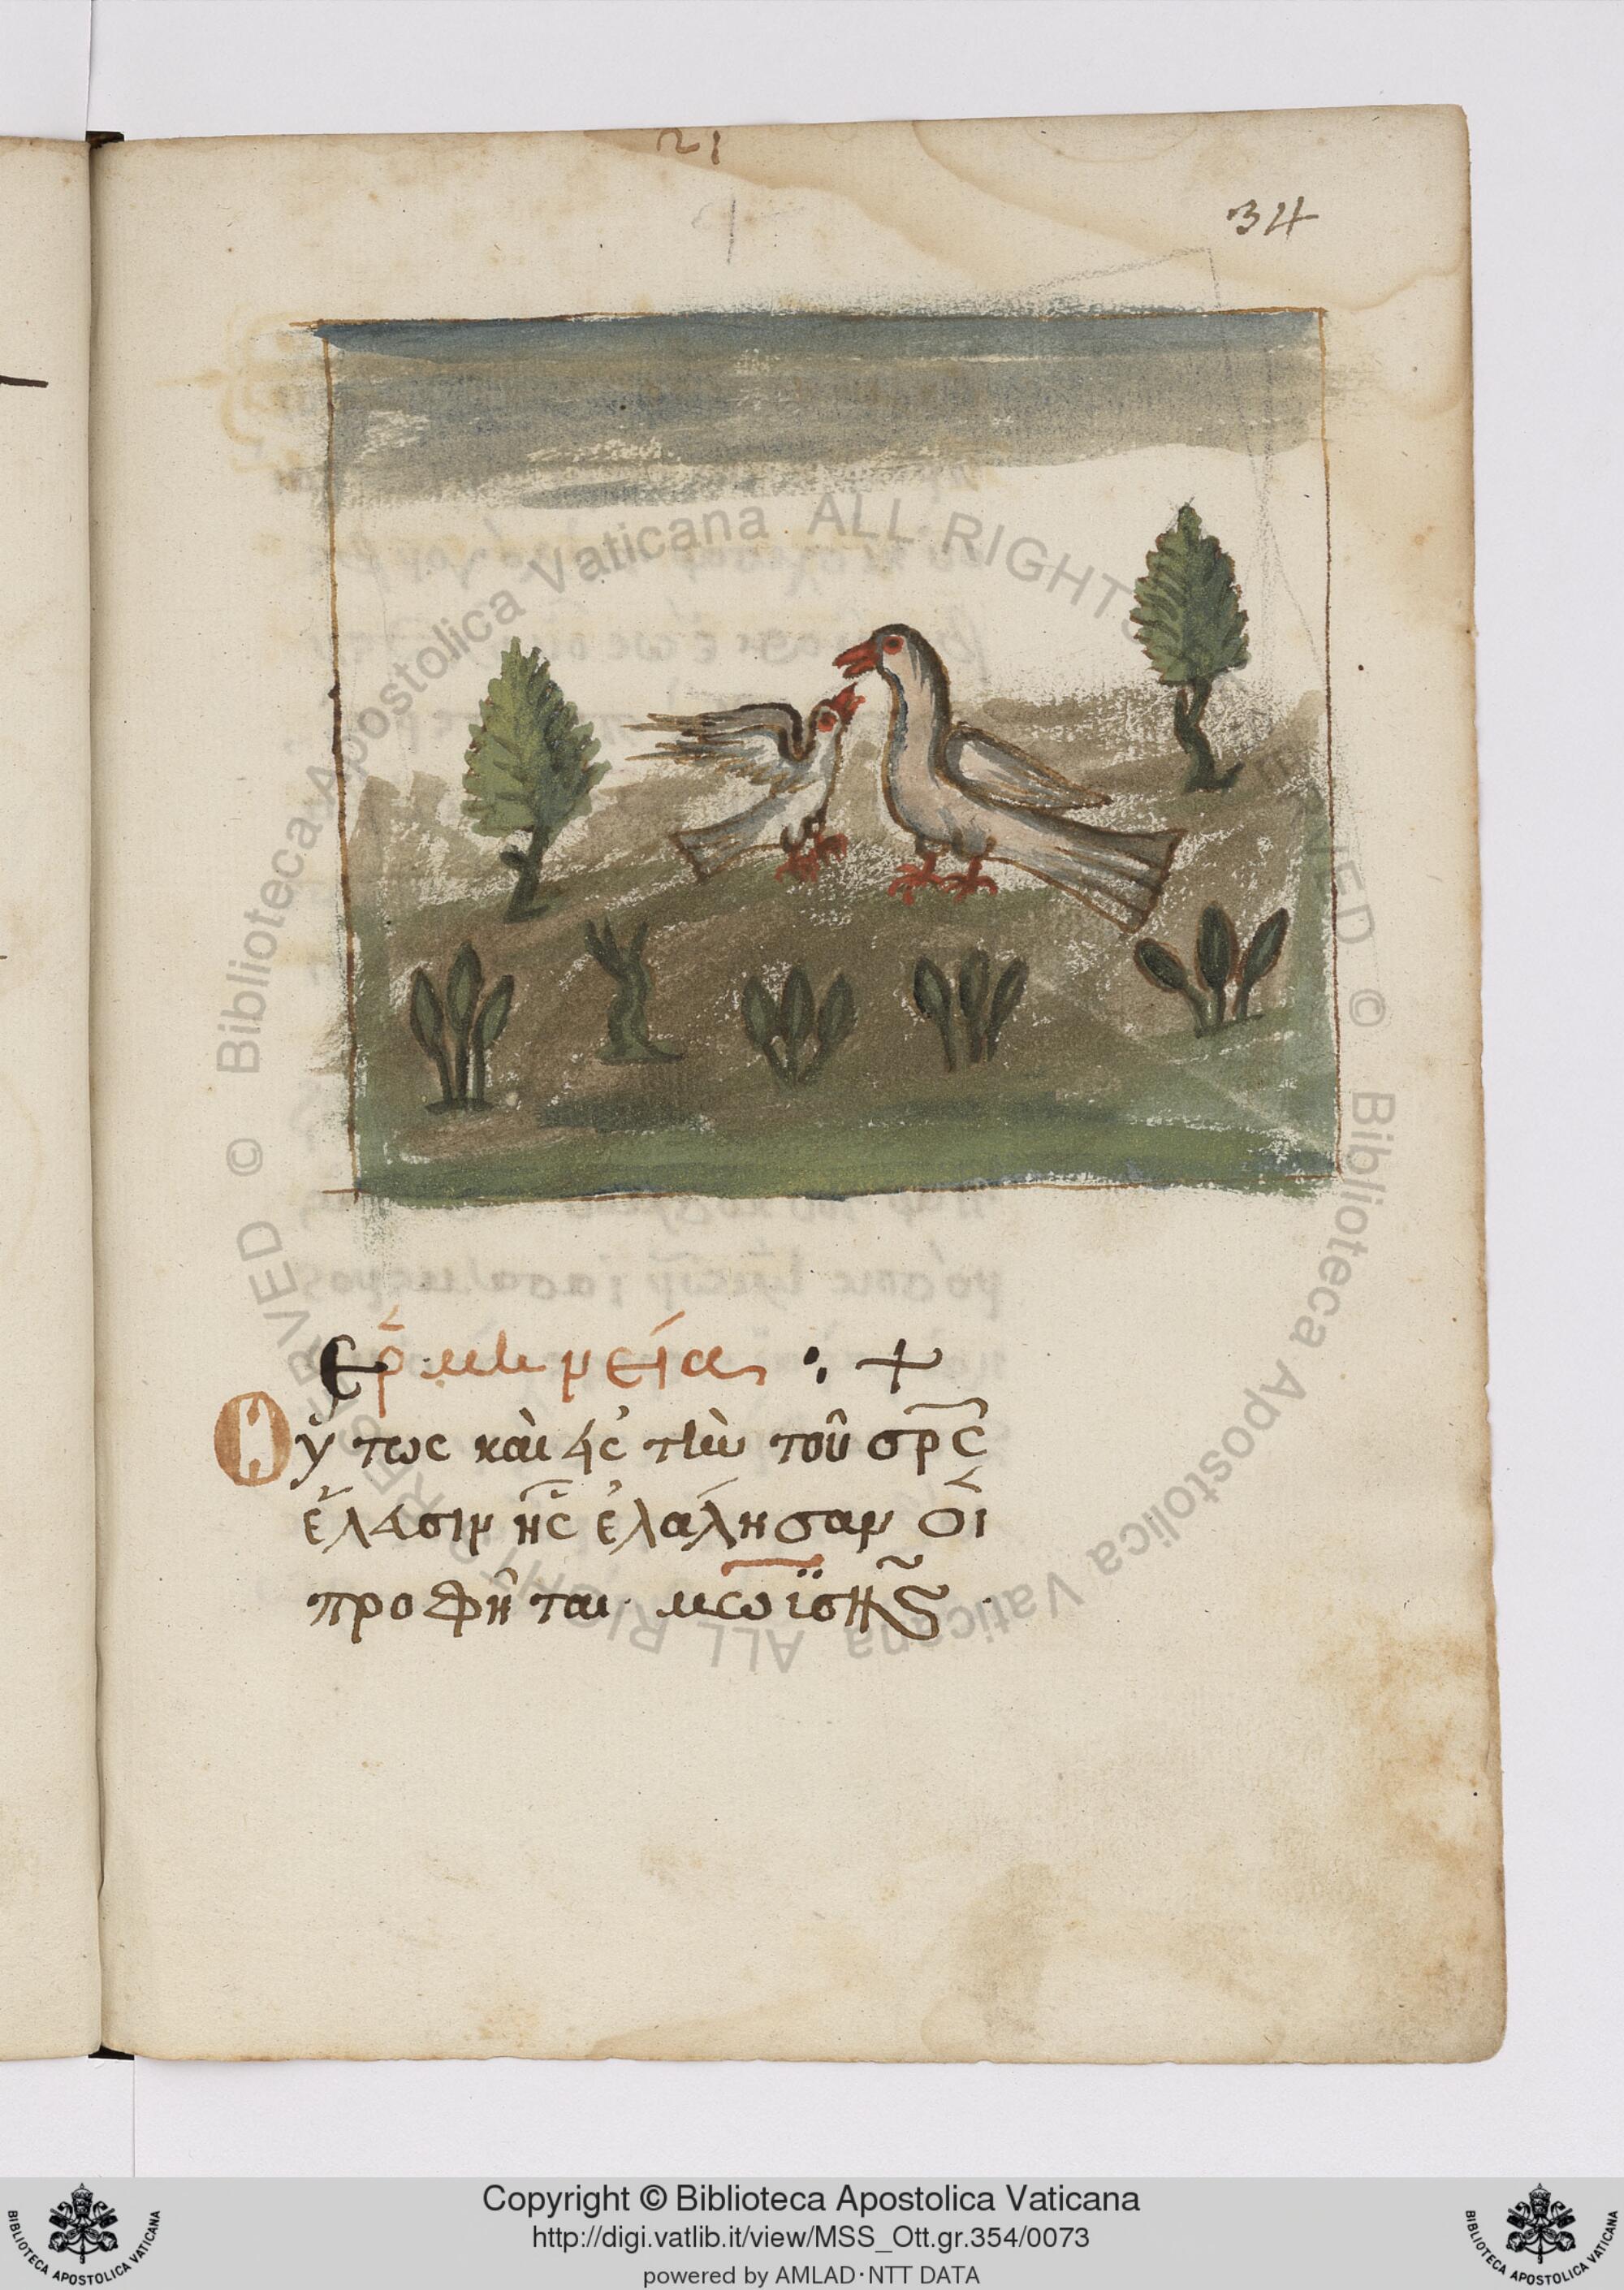 21
34
Ερμηνεία :· +
Ούτως καὶ εἰς τὴν τοῦ σρς
ἔλασιν ἧς ἐλάλησαν οἱ
προφῆται· μωϊσῆς·
Copyright © Biblioteca Apostolica Vaticana
http://digi.vatlib.it/view/MSS_Ott.gr.354/0073
powered by AMLAD·NTT DATA
BIBLIOTECA APOSTOLICA VATICANA
BIBLIOTECA APOSTOLICA VATICANA
© Biblioteca Apostolica Vaticana ALL RIGHTS RESERVED © Biblioteca Apostolica Vaticana ALL RIGHTS RESERVED